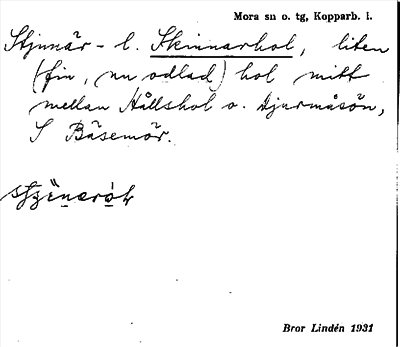 Mora sn o. tg, Kopparb. l.
Stjinnär- l. Skinnarhol, liten
(fin, nu odlad) hol mitt
mellan Hållshol o. Djurmåsön,
S Bäsemör.
Bror Lindén 1931